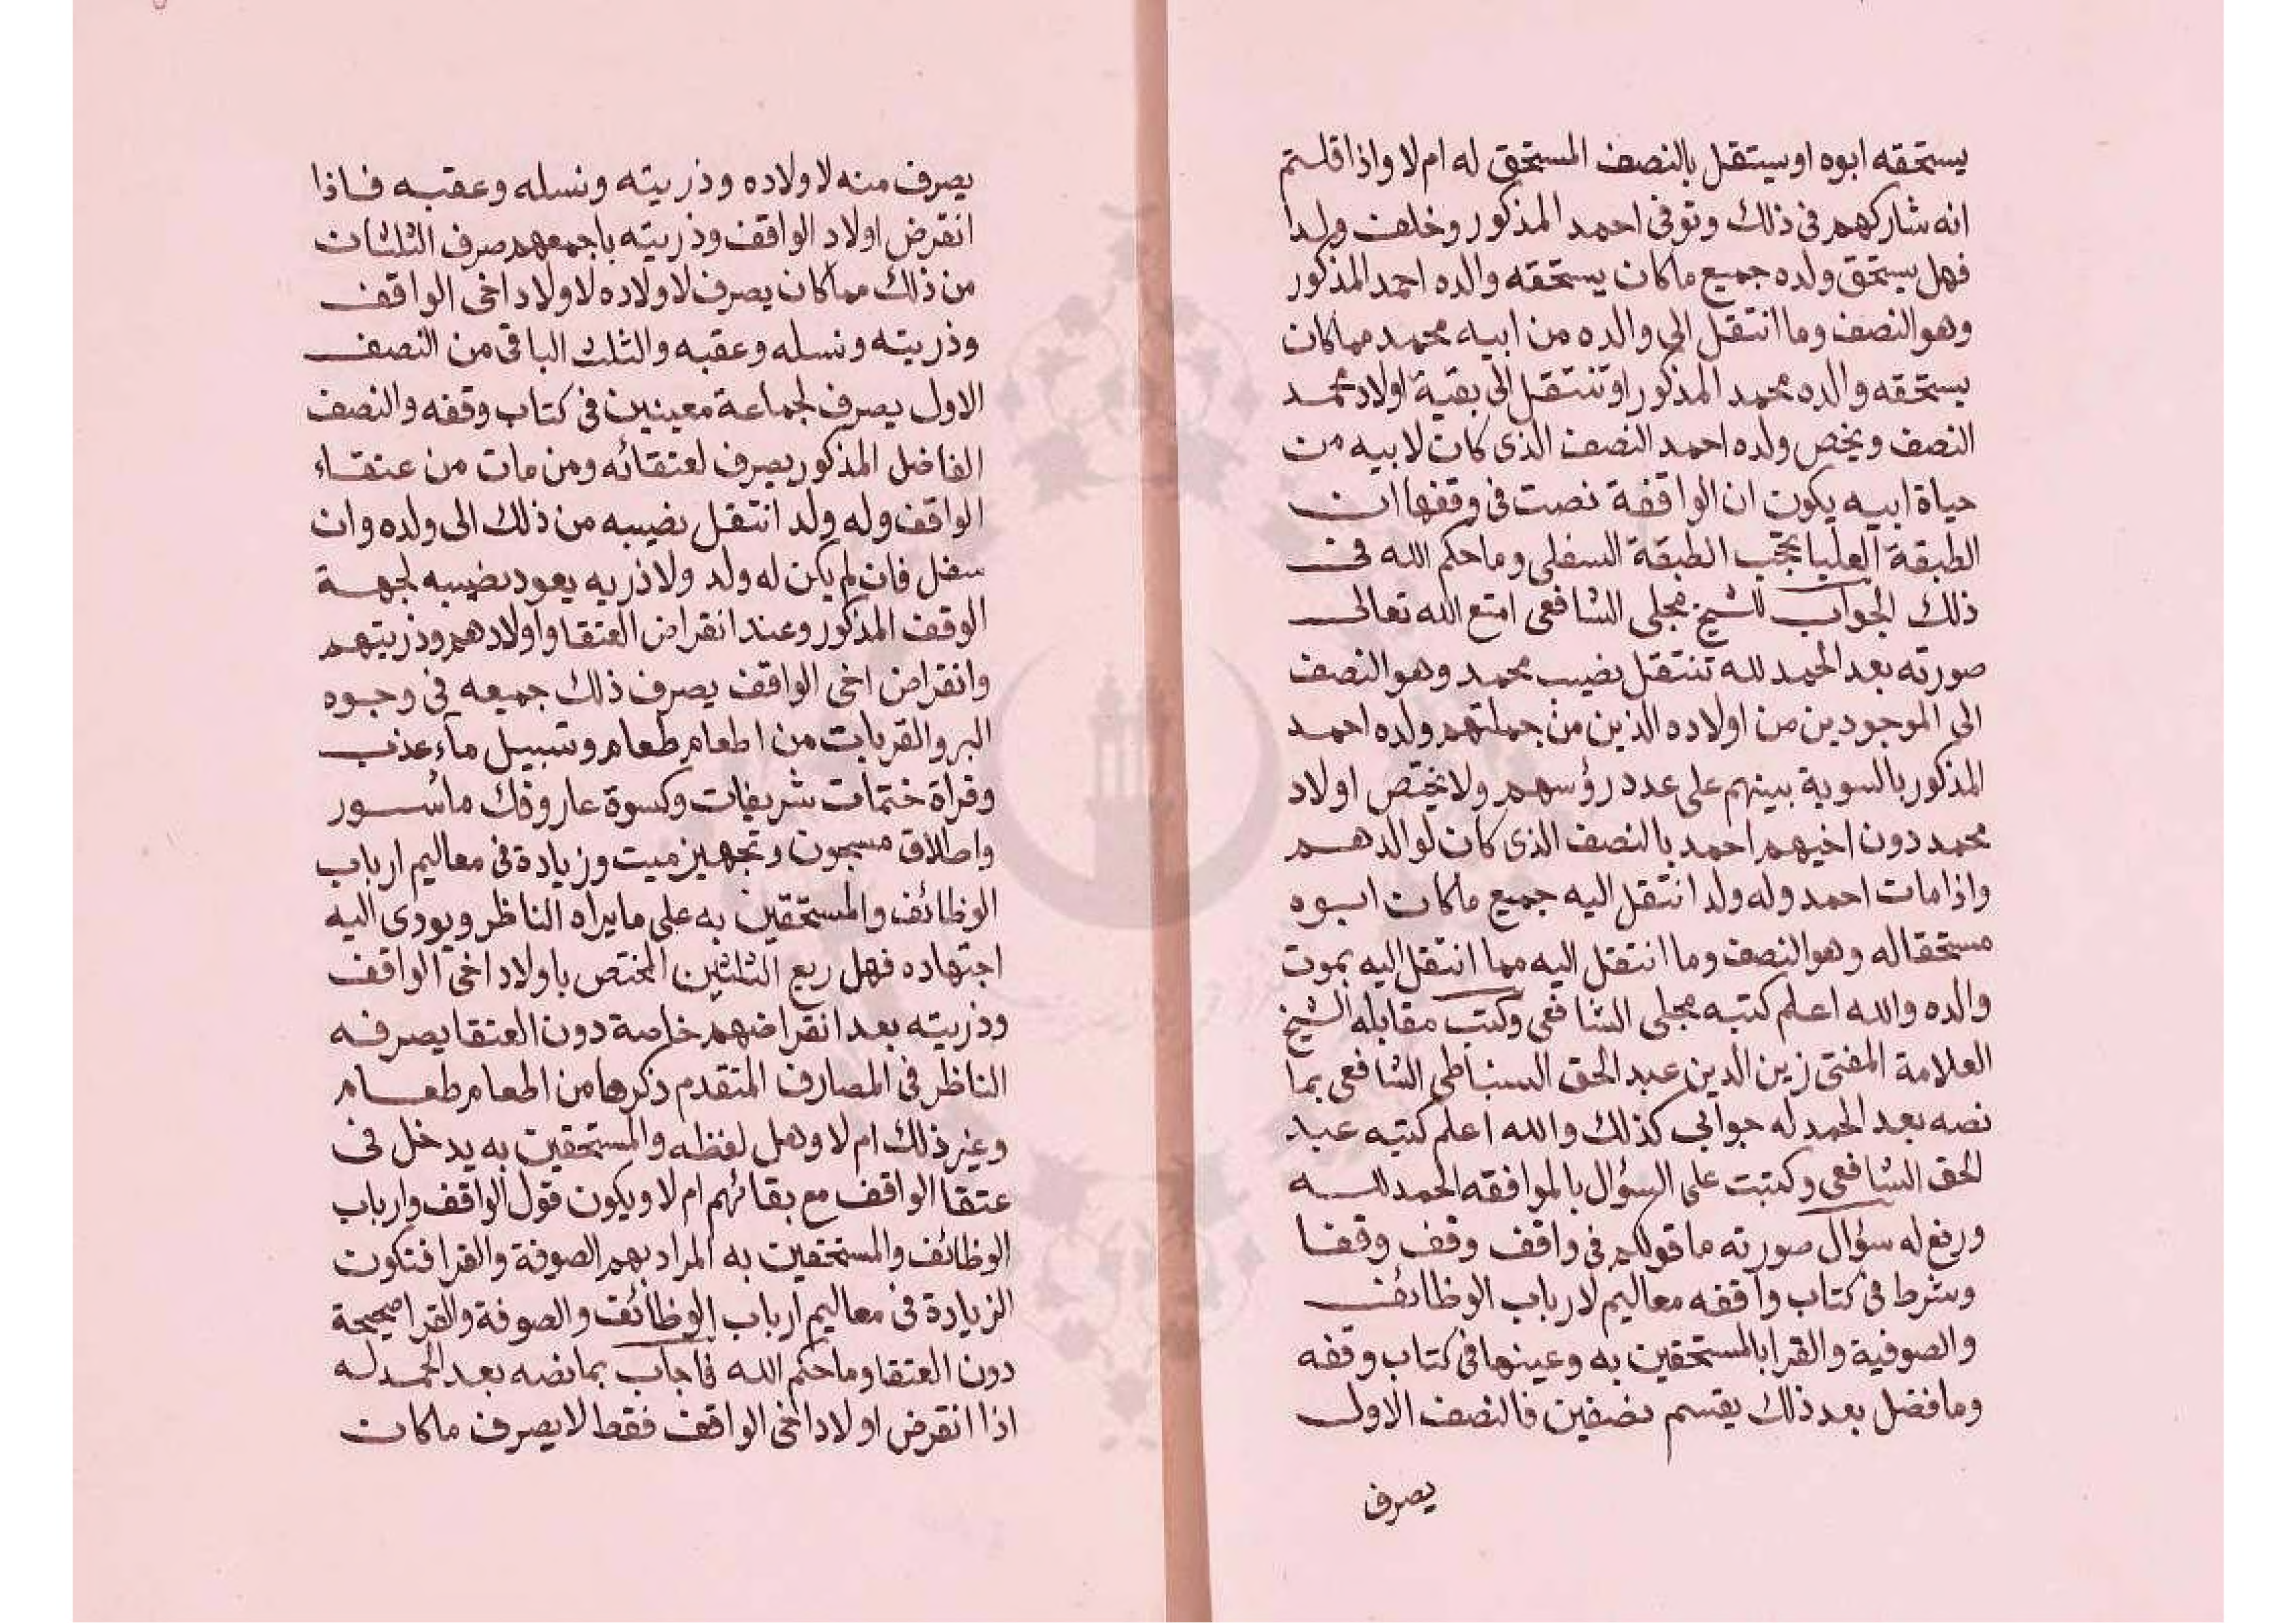 يستحقه ابوه او يستقل بالنصف المستحق له ام لا واذا قلتم
انه شاركهم فى ذلك وتوفى احمد المذكور وخلف ولدا
فهل يستحق ولده جميع ماكان يستحقه والده احمد المذكور
وهو النصف وما انتقل الى والده من ابيه محمد مماكان
يستحقه والده محمد المذكور او تنتقل الى بقية اولاد محمد
النصف ويخص ولده احمد النصف الذى كان لابيه من
حياة ابيه يكون ان الواقفة نصت فى وقفها ان
الطبقة العليا تحجب الطبقة السفلى وماحكم الله فى
ذلك الجواب للشيخ مجلى الشافعى امتع الله تعالى
صورته بعد الحمد لله تنتقل نصيب محمد وهو النصف
الى الموجودين من اولاده الذين من جملتهم ولده احمد
المذكور بالسوية بينهم على عدد رؤسهم ولا يختص اولاد
محمد دون اخيهم احمد بالنصف الذى كان لوالدهم
واذا مات احمد وله ولد انتقل اليه جميع ماكان ابوه
مستحقا له وهو النصف وما انتقل اليه مما انتقل اليه بموت
والده والله اعلم كتبه مجلى الشافعى وكتب مقابله الشيخ
العلامة المفتى زين الدين عبد الحق السنباطى الشافعى بما
نصه بعد الحمد له جوابى كذلك والله اعلم كتبه عبد
الحق الشافعى وكتبت على السؤال بالموافقه الحمد لله
ورفع له سؤال صورته ما قولكم فى واقف وقف وقفا
وشرط فى كتاب واقفه معاليم لارباب الوظائف
والصوفية والقرا بالمستحقين به وعينها فى كتاب وقفه
وما فضل بعد ذلك يقسم نصفين فالنصف الاول
يصرف
يصرف منه لاولاده وذريته ونسله وعقبه فاذا
انقرض اولاد الواقف وذريته باجمعهم صرف الثلثان
من ذلك مماكان يصرف لاولاده لاولاد اخى الواقف
وذريته ونسله وعقبه والثلث الباقى من النصف
الاول يصرف لجماعة معينين فى كتاب وقفه والنصف
الفاضل المذكور يصرف لعتقائه ومن مات من عتقاء
الواقف وله ولد انتقل نصيبه من ذلك الى ولده وان
سفل فان لم يكن له ولد ولا ذريه يعود نصيبه لجهة
الوقف المذكور وعند انقراض العتقا واولادهم وذريتهم
وانقراض اخى الواقف يصرف ذلك جميعه فى وجوه
البر والقربات من اطعام طعام وتسبيل ماء عذب
وقراة ختمات شريفات وكسوة عار وفك ماسور
واطلاق مسجون وتجهيز ميت وزيادة فى معاليم ارباب
الوظائف والمستحقين به على مايراه الناظر ويودى اليه
اجتهاده فهل ريع الثلثين المختص باولاد اخى الواقف
وذريته بعد انقراضهم خاصة دون العتقا يصرفه
الناظر فى المصارف المتقدم ذكرها من اطعام طعام
وغير ذلك ام لا وهل لفظه والمستحقين به يدخل فى
عتقا الواقف مع بقائهم ام لا ويكون قول الواقف وارباب
الوظائف والمستحقين به المراد بهم الصوفة والقرا فتكون
الزيادة فى معاليم ارباب الوظائف والصوفة والقرا صحيحة
دون العتقا وماحكم الله فاجاب بمانصه بعد الحمد له
اذا انقرض اولاد اخى الواقف فقط لا يصرف ماكان